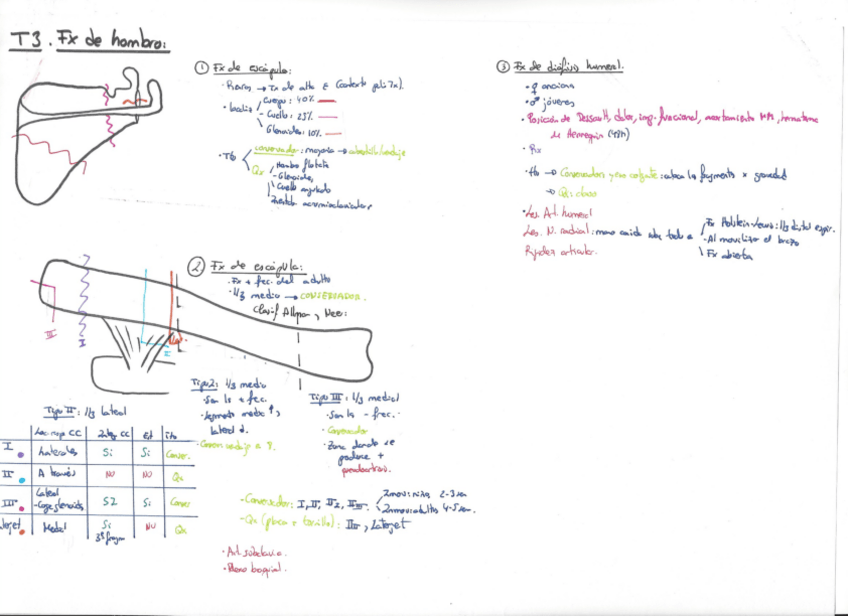 T3. Fx de hombro:
① Fx de escápula:
· Raros → Tx de alta E (contexto poli Tx).
· Localiz
Cuerpo: 40%
- Cuello: 25%
Glenoides: 10%
· Tto
conservador: mayoría → cabestrillo/vendaje
Qx
Hombro flotante
- Glenoides
Cuello angulado
② Fx de escápula:
· Fx + frec. del adulto
· 1/3 medio → CONSERVADOR.
Clasif Allman, Neer:
III
I
II
Tipo II: 1/3 lateral
CC
CC
Est
tto
I
Laterales
Si
Si
Conser.
II
A través
NO
NO
Qx
III
Lateral
SI
Si
Conser
Medial
Si
3º fragm
NO
Qx
Tipo 2: 1/3 medio
· Son ls + frec.
· Segmento medio ↑,
lateral ↓.
· Conser vendaje en 8.
Tipo III: 1/3 medial
· Son ls - frec.
· Conservador
· Zona donde se
produce +
pseudoartrosis.
· Conservador: I, II,
Inmov niños 2-3 sem
Inmov adultos 4-5 sem.
· Qx (placa + tornillo):
, Latarjet
· Art. subclavia.
· Plexo braquial.
③ Fx de diáfisis humeral.
· ♀ ancianas
· ♂ jóvenes
· Posición de Dessault, dolor, imp. funcional, acortamiento MM, hematoma
de Hennequin (48h)
· Rx
· tto → Conservador y eso colgante: coloca los fragmentos x gravedad
→ Qx: clavo
· Les. Art. humeral
Les. N. radial: mano caída sobre todo a
Fx Holstein-Lewis: 1/3 distal espir.
- Al movilizar el brazo
Fx abierta
Rigidez articular.